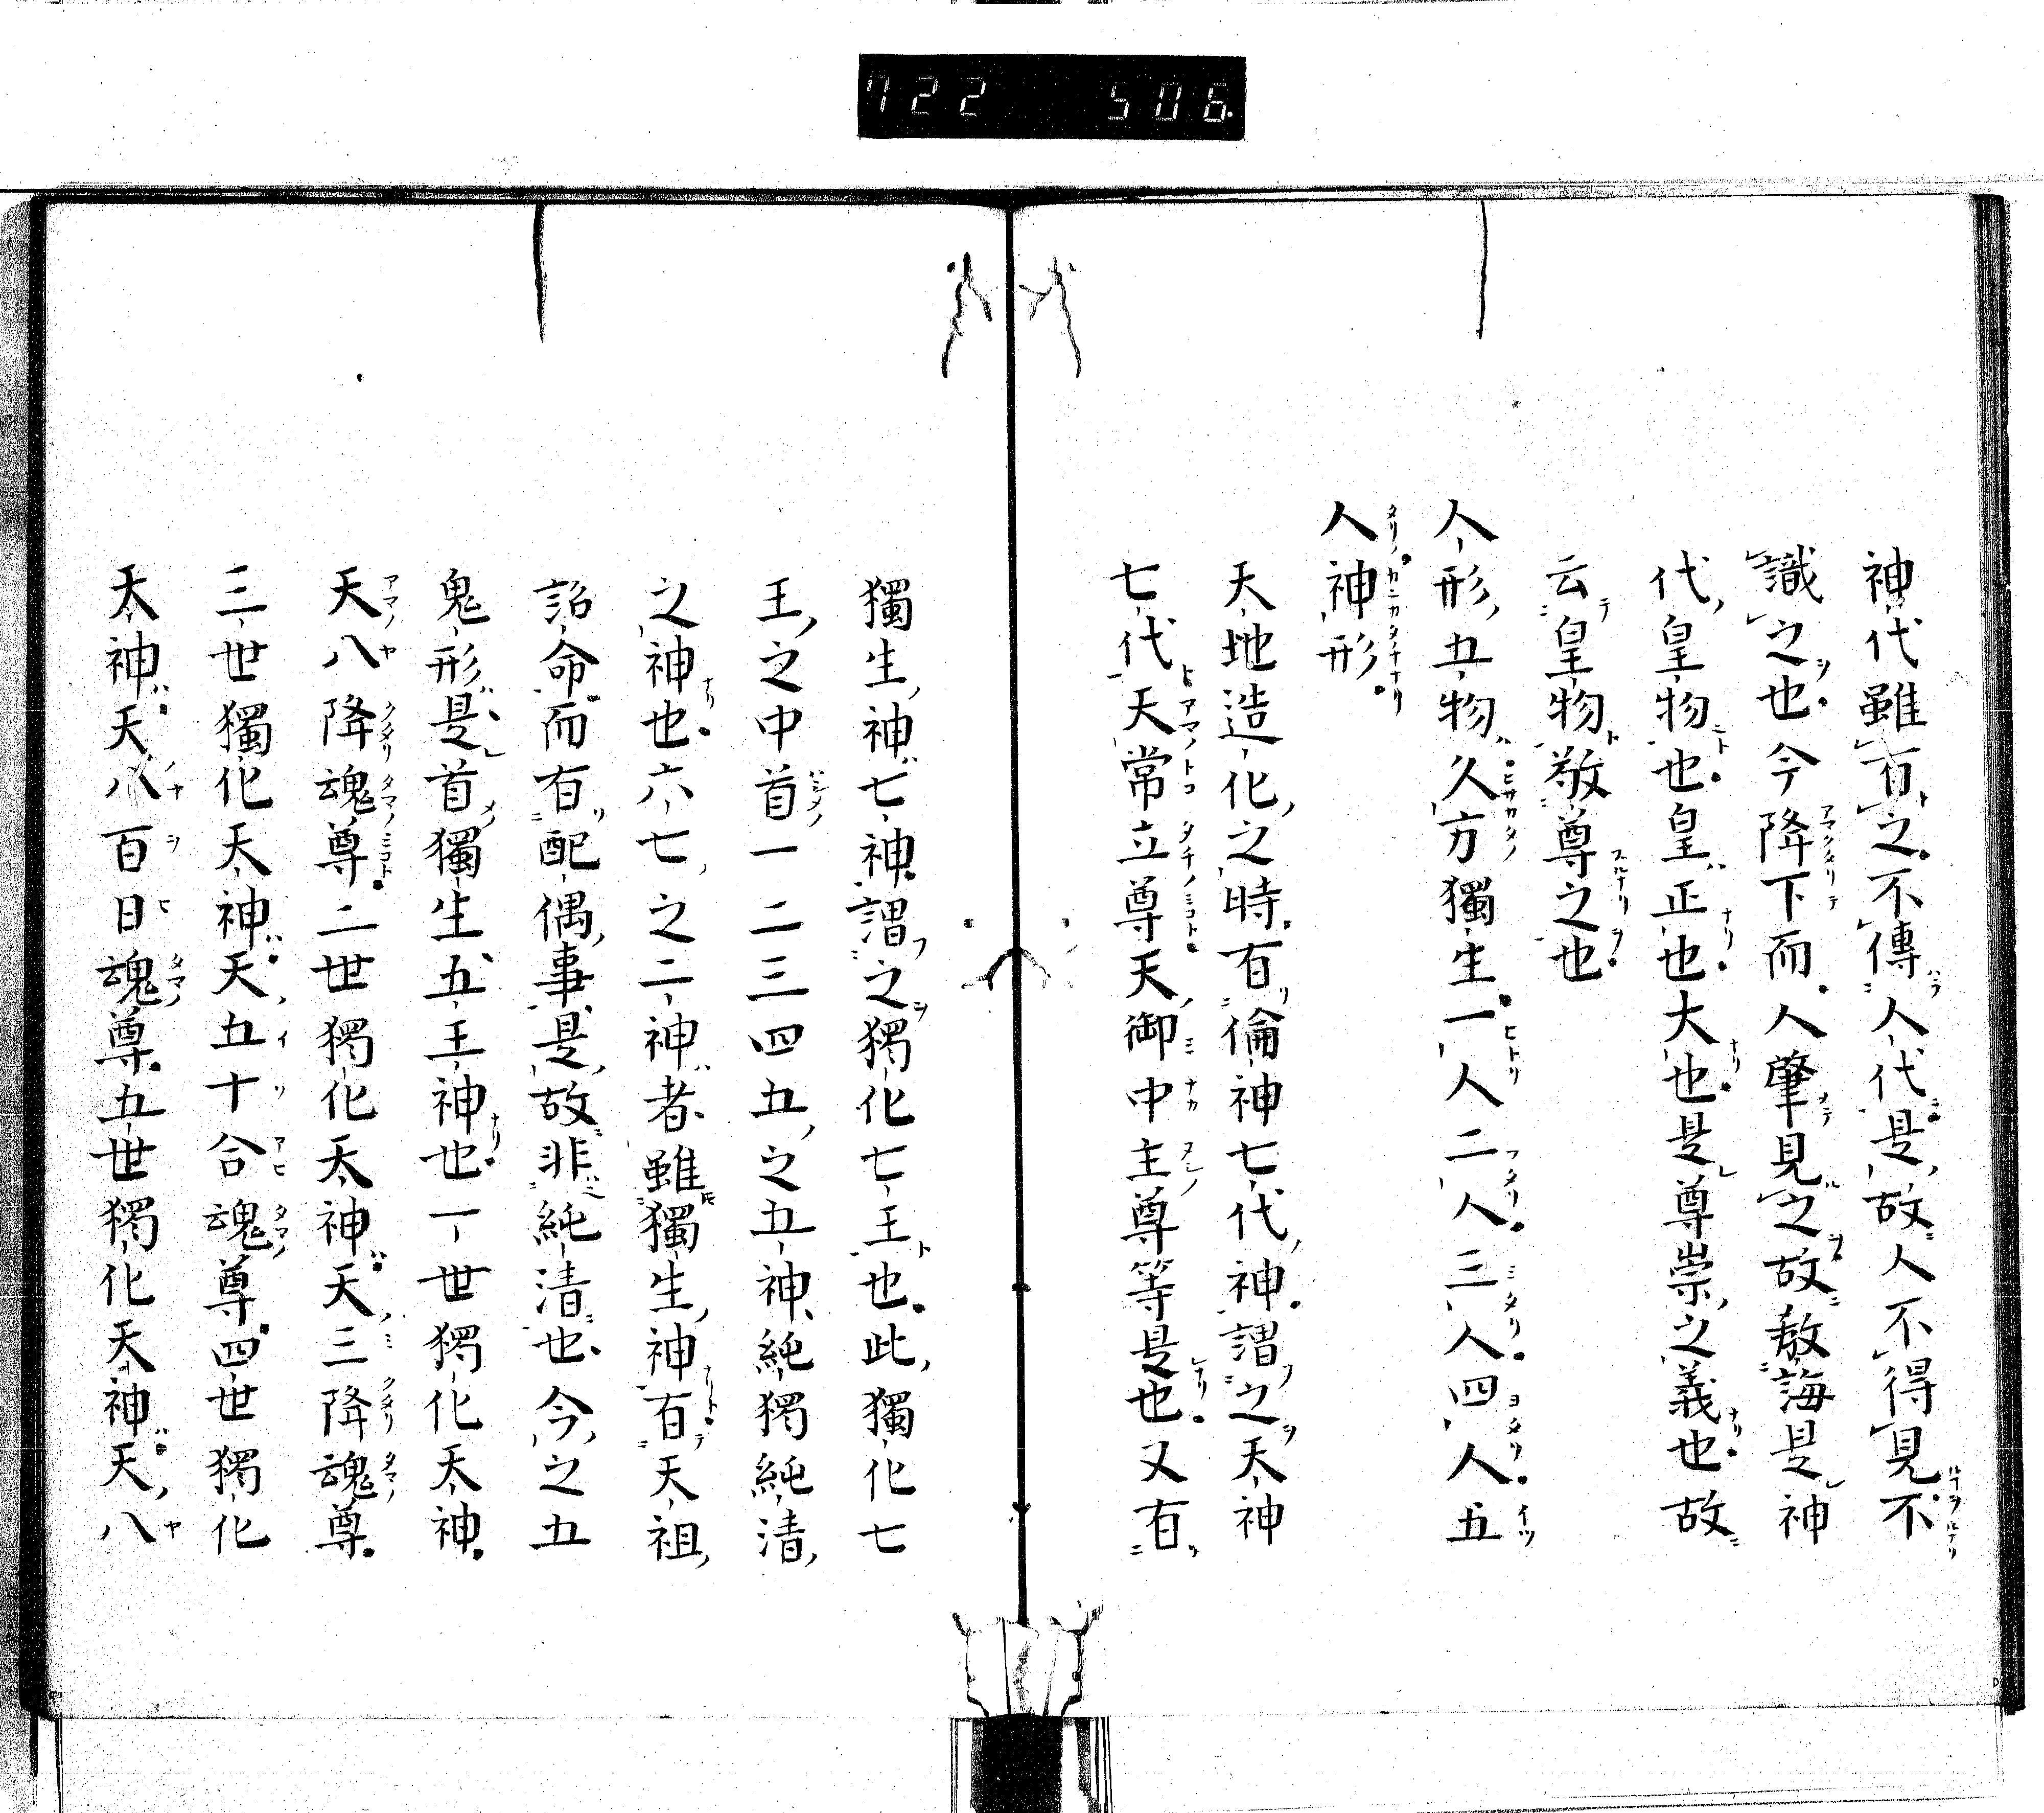 722 506
神代雖有之不傳人代是故人不得見不
識之也今降下而人肇見之故敖誨是神
代皇物也皇正也大也是尊崇之義也故
云皇物敬尊之也
人形五物久方獨生一人二人三人四人五
人神形
天地造化之時有倫神七代神謂之天神
七代天常立尊天御中主尊等是也又有
獨生神七神謂之獨化七王也此獨化七
王之中首一二三四五之五神純獨純清
之神也六七之二神者雖獨生神有天祖
詔命而有配偶事是故非純清也今之五
鬼形是首獨生五王神也一世獨化天神
天八降魂尊二世獨化天神天三降魂尊
三世獨化天神天五十合魂尊四世獨化
天神天八百日魂尊五世獨化天神天八